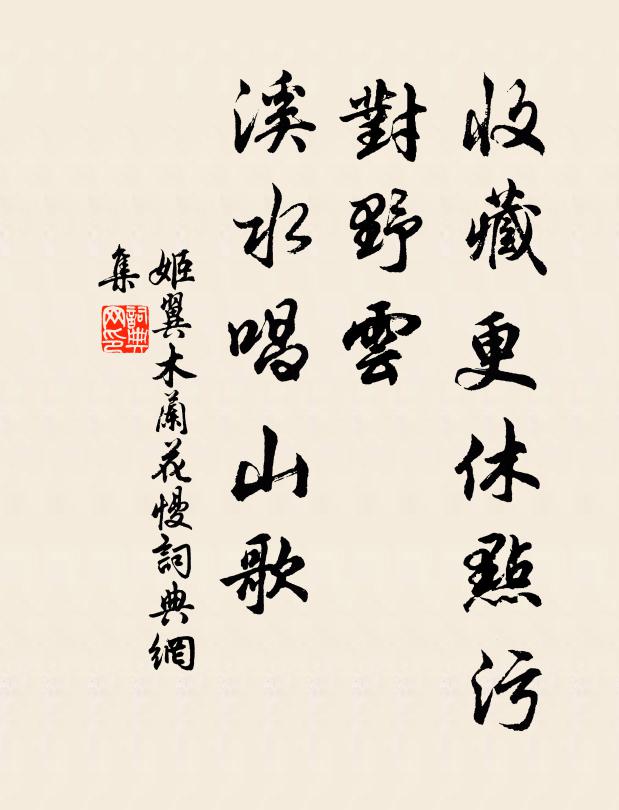 收藏更休點污
對野雲
溪水唱山歌
姬翼木蘭花慢詞典網
集
詞典網印